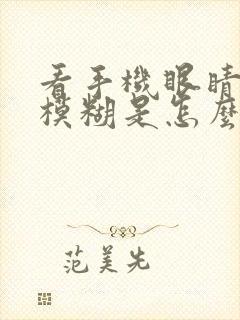 看手機眼睛
模糊是怎麼
范美先